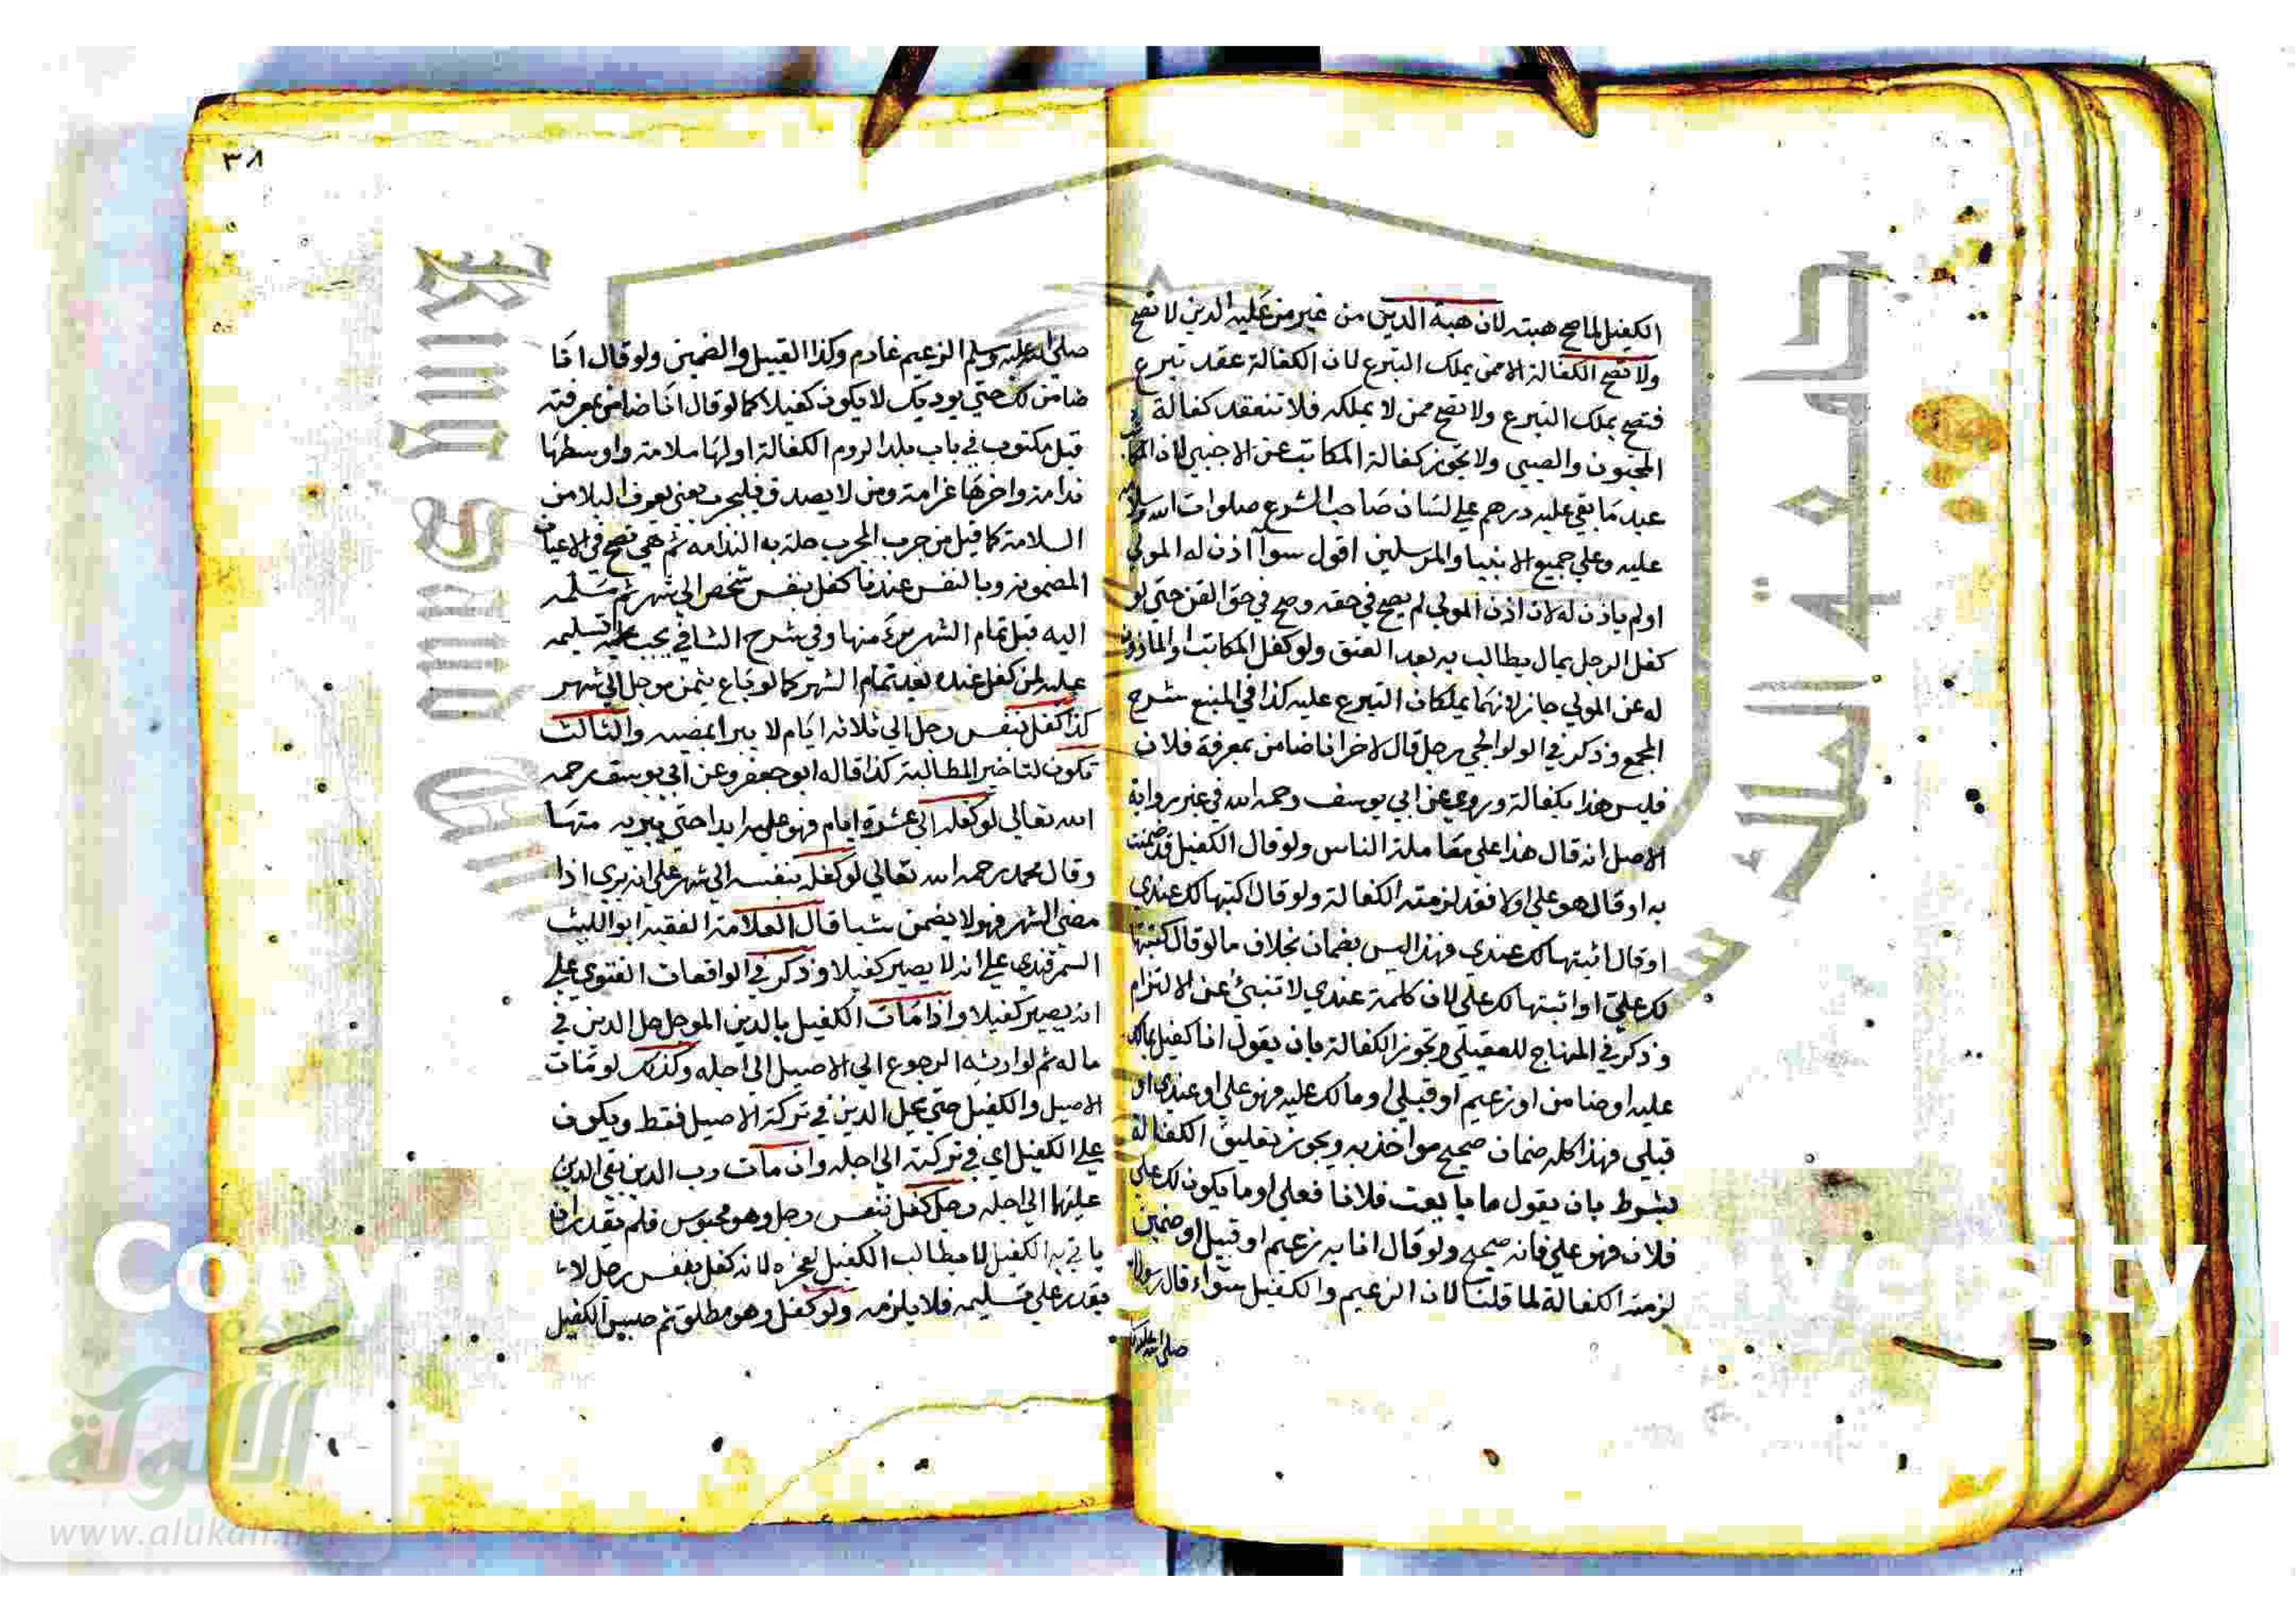 الكفيل لما صح هبته لان هبة الدين من غير من عليه الدين لا تصح
ولا تصح الكفالة الا ممن يملك التبرع لان الكفالة عقد تبرع
فتصح بملك التبرع ولا تصح ممن لا يملكه فلا تنعقد كفالة
المجنون والصبي ولا تجوز كفالة المكاتب عن الاجنبي لان
عبد ما بقي عليه درهم على لسان صاحب الشرع صلوات الله
عليه وعلى جميع الانبيا والمرسلين اقول سواء اذن له المولي
او لم ياذن له لان اذن المولي لم يصح في حقه وصح في حق القن حتي لو
كفل الرجل بمال يطالب به بعد العتق ولو كفل المكاتب او الماذون
له عن المولي جاز لانهما يملكان التبرع عليه كذا في المنبع شرح
المجمع وذكر في الولوالجي رجل قال لاخر انا ضامن بمعرفة فلان
فليس هذا بكفالة وروي عن ابي يوسف رحمه الله في غير رواية
الاصل انه قال هذا علي معاملة الناس ولو قال الكفيل قد ضمنت
به او قال هو علي اولا فقد لزمته الكفالة ولو قال اكتبها لك عندي
او قال اثبتها لك عندي فهذا ليس بضمان بخلاف ما لو قال كتبتها
لك علي او اثبتها لك علي لان كلمة عندي لا تنبئ عن الالتزام
وذكر في المنهاج للعقيلي وتجوز الكفالة بان يقول انا كفيل بمالك
عليه او ضامن او زعيم او قبيلي او مالك عليه فهو علي او عندي او
قبلي فهذا كله ضمان صحيح مواخذ به ويجوز تعليق الكفالة
بشرط بان يقول ما بايعت فلانا فعلي او ما يكون لك علي
فلان فهو علي فانه صحيح ولو قال انا به زعيم او قبيل او ضمين
لزمته الكفالة لما قلنا لان الزعيم والكفيل سواء قال
صلى الله عليه
٣٨
صلى الله عليه وسلم الزعيم غارم وكذا القبيل والضمين ولو قال انا
ضامن لك حتي يوديك لا يكون كفيلا كما لو قال انا ضامن بمعرفته
قيل مكتوب في باب بلد الروم الكفالة اولها ملامة واوسطها
ندامة واخرها غرامة ومن لا يصدق فليجرب يعني يعرف البلا من
السلامة كما قيل من جرب المجرب حلت به الندامه ثم هي تصح في الاعيان
المضمونه وبالنفس عندنا كفل بنفس شخص الي شهر ثم سلمه
اليه قبل تمام الشهر برئ منها وفي شرح الشافي يجب عليه تسليمه
عليه لمن كفل عنده بعد تمام الشهر كما لو باع بثمن موجل الي شهر
كذا كفل بنفس رجل الي ثلاثه ايام لا يبرا بمضيه والثالث
تكون لتاخير المطالبة كذا قاله ابو جعفر وعن ابي يوسف رحمه
الله تعالي لو كفله الي عشرة ايام فهو عليه ابدا حتي يبريه منها
وقال محمد رحمه الله تعالي لو كفله بنفسه الي شهر علي انه بري اذا
مضي الشهر فهو لا يضمن شيا قال العلامة الفقيه ابو الليث
السمرقندي علي انه لا يصير كفيلا وذكر في الواقعات الفتوي علي
انه يصير كفيلا واذا مات الكفيل بالدين الموجل حل الدين في
ماله ثم لوارثه الرجوع الي الاصيل الي اجله وكذلك لو مات
الاصيل والكفيل حتي يحل الدين في تركة الاصيل فقط ويكون
علي الكفيل اي في تركته الي اجله وان مات رب الدين بقي الدين
عليهما الي اجله رجل كفل بنفس رجل وهو محبوس فلم يقدر ان
ياتي به الكفيل لا يطالب الكفيل لعجزه لانه كفل بنفس رجل لا
يقدر علي تسليمه فلا يلزمه ولو كفل وهو مطلق ثم حبس الكفيل
جامعة الملك سعود
King Saud University
Copyri
versity
الألوكة
www.alukah.net